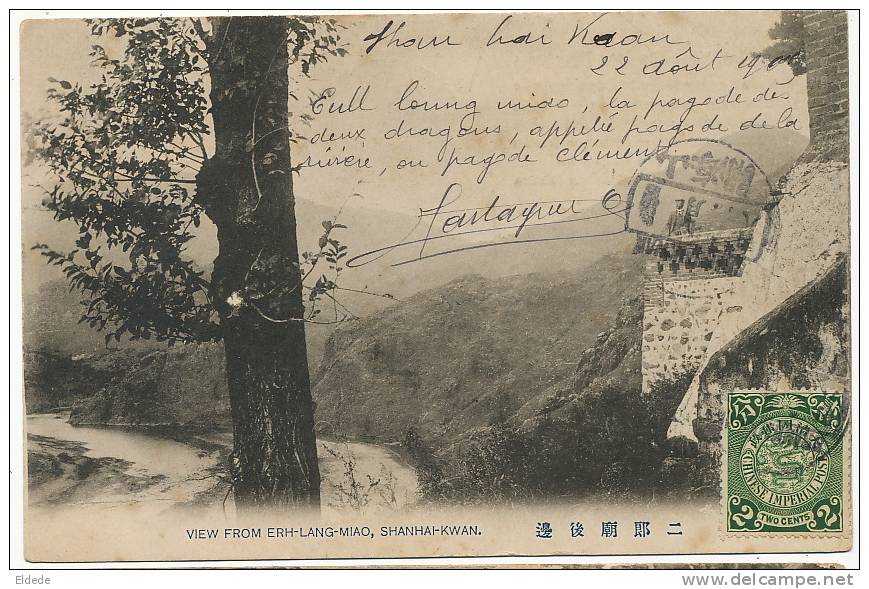 Shan hai Kuan
22 Août 190
Eull loung miao, la pagode des
deux dragons, appelée pagode de la
rivière, ou pagode clément
VIEW FROM ERH-LANG-MIAO, SHANHAI-KWAN.
邊後廟郎二
CHINESE IMPERIAL POST
2 TWO CENTS 2
Eldede
delcampe.net